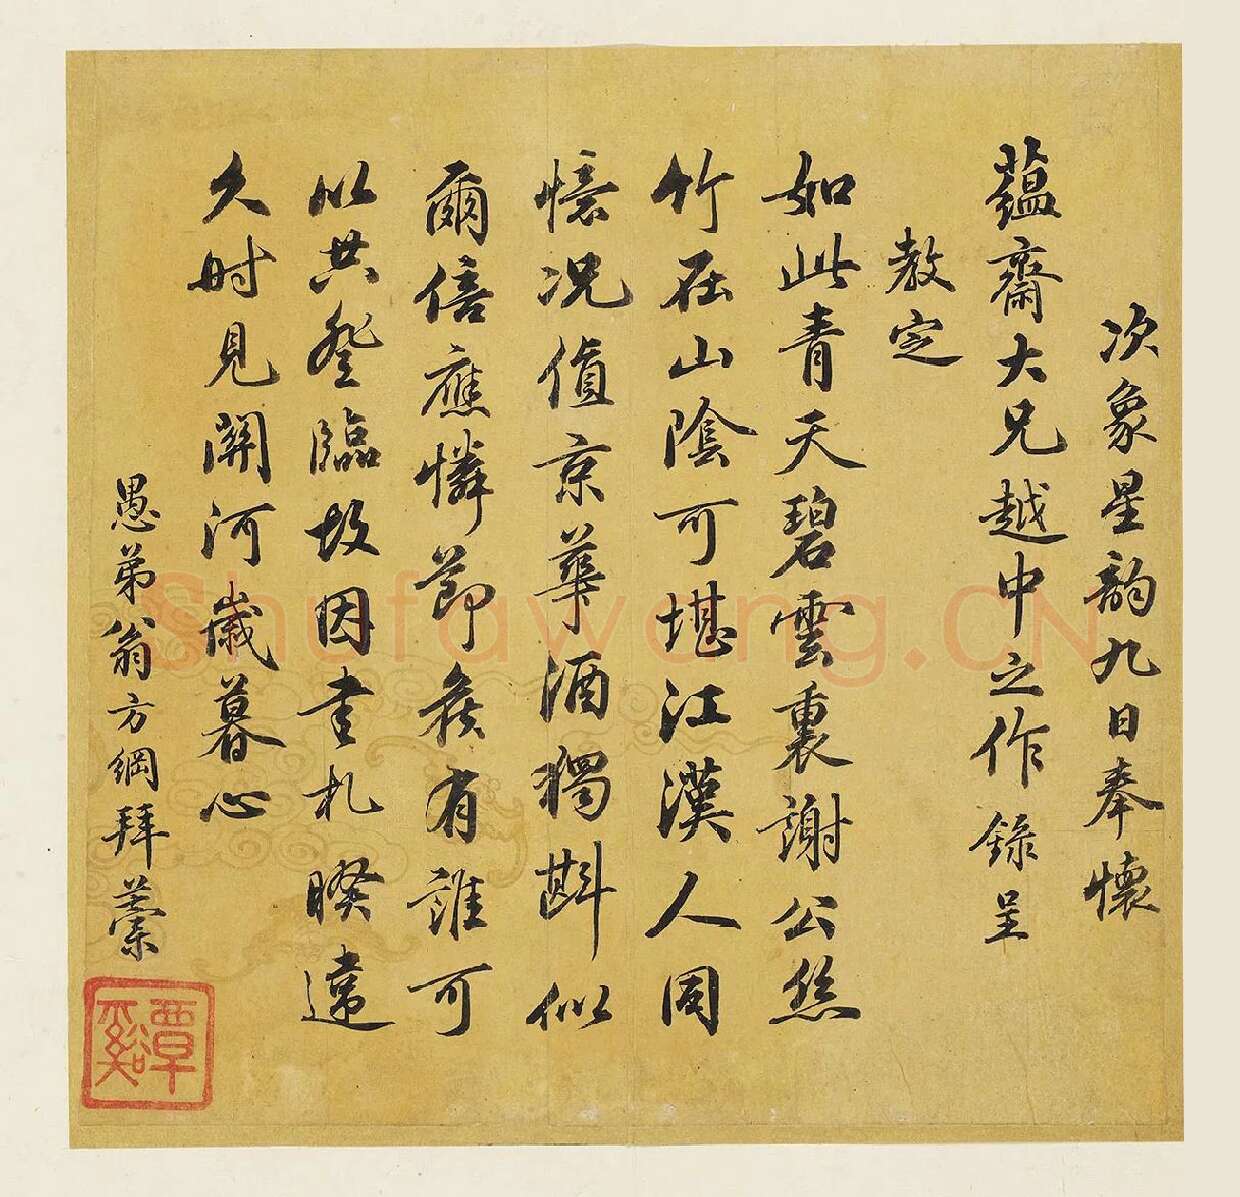 次象星韵九日奉懷
蘊齋大兄越中之作錄呈
教定
如此青天碧雲裏謝公絲
竹在山陰可堪江漢人同
憶况值京華酒獨斟似
爾倍應憐節候有誰可
以共登臨故因書札暌違
久时見關河歲暮心
愚弟翁方綱拜藁
覃谿
Shufawang.CN